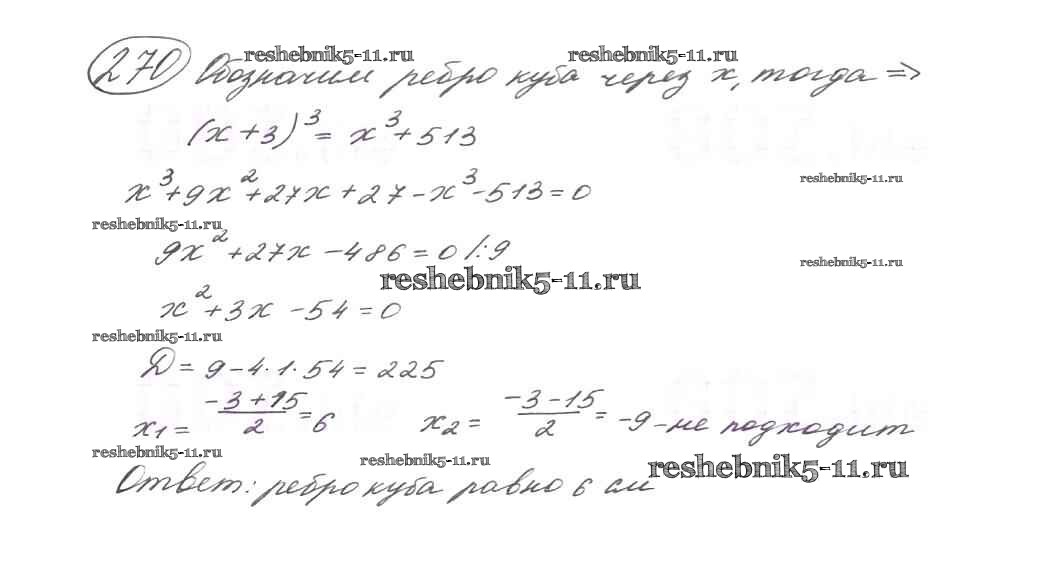 reshebnik5-11.ru reshebnik5-11.ru
270 Обозначим ребро куба через x, тогда =>
(x+3)³ = x³+513
x³+9x²+27x+27-x³-513=0
reshebnik5-11.ru
reshebnik5-11.ru
9x²+27x-486=0 /:9
reshebnik5-11.ru
reshebnik5-11.ru
x²+3x-54=0
reshebnik5-11.ru
Д=9-4·1·54=225
x1= -3+15/2 =6 x2= -3-15/2 = -9-не подходит
reshebnik5-11.ru reshebnik5-11.ru reshebnik5-11.ru
Ответ: ребро куба равно 6 см